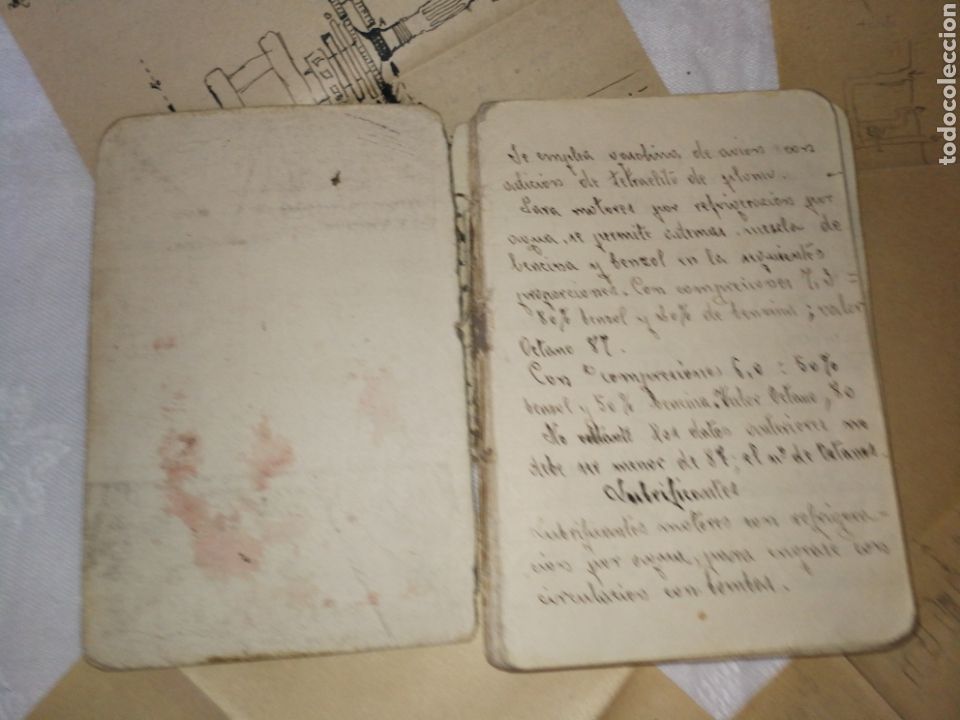 Se emplea gasolina de avion con
adición de tetraetilo de plomo.
Para motores por refrigeracion por
agua, se permite ademas mescla de
bencina y benzol en la siguientes
proporciones. Con compreciones 7,3 =
80% benzol y 20% de bencina; valor
Octano 87.
Con compreciones 6,0 = 50%
benzol y 50% bencina. Valor Octano, 80
No obstante los datos anteriores no
debe ser menor de 87; el nº de Octanos.
Lubrificantes
Lubrificantes motores con refrigera=
cion por agua, para engrase con
circulacion con bombas.
todocoleccion